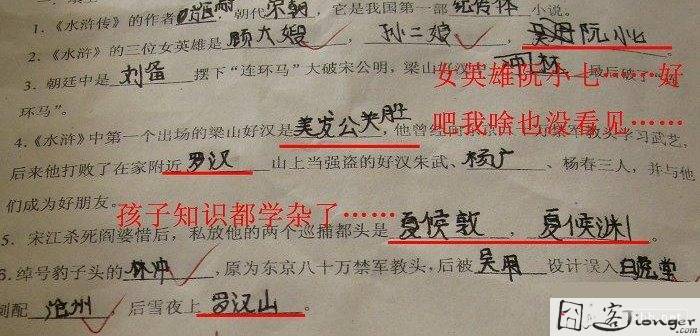 1.《水浒传》的作者 施耐 , 朝代 宋朝 , 它是我国第一部 纪传体 小说。
2.《水浒》的三位女英雄是 顾大嫂 , 孙二娘 , 阮小七
3. 朝廷中是 刘备 摆下“连环马”大破宋公明,梁山好汉中 最后破了
女英雄阮小七……好
环马”。
吧我啥也没看见……
4.《水浒》中第一个出场的梁山好汉是 美发公关胜 ,他曾经向 军教头学习武艺,
后来他打败了在家附近 罗汉 山上当强盗的好汉朱武、 杨广 、杨春三人,并与他
们成为好朋友。
孩子知识都学杂了……
5. 宋江杀死阎婆惜后,私放他的两个巡捕都头是 夏侯敦 , 夏侯渊 。
6. 绰号豹子头的 林冲 ,原为东京八十万禁军教头,后被 吴用 设计误入 白虎堂
刺配 沧州 ,后雪夜上 罗汉山 。
囧客Jionger.com